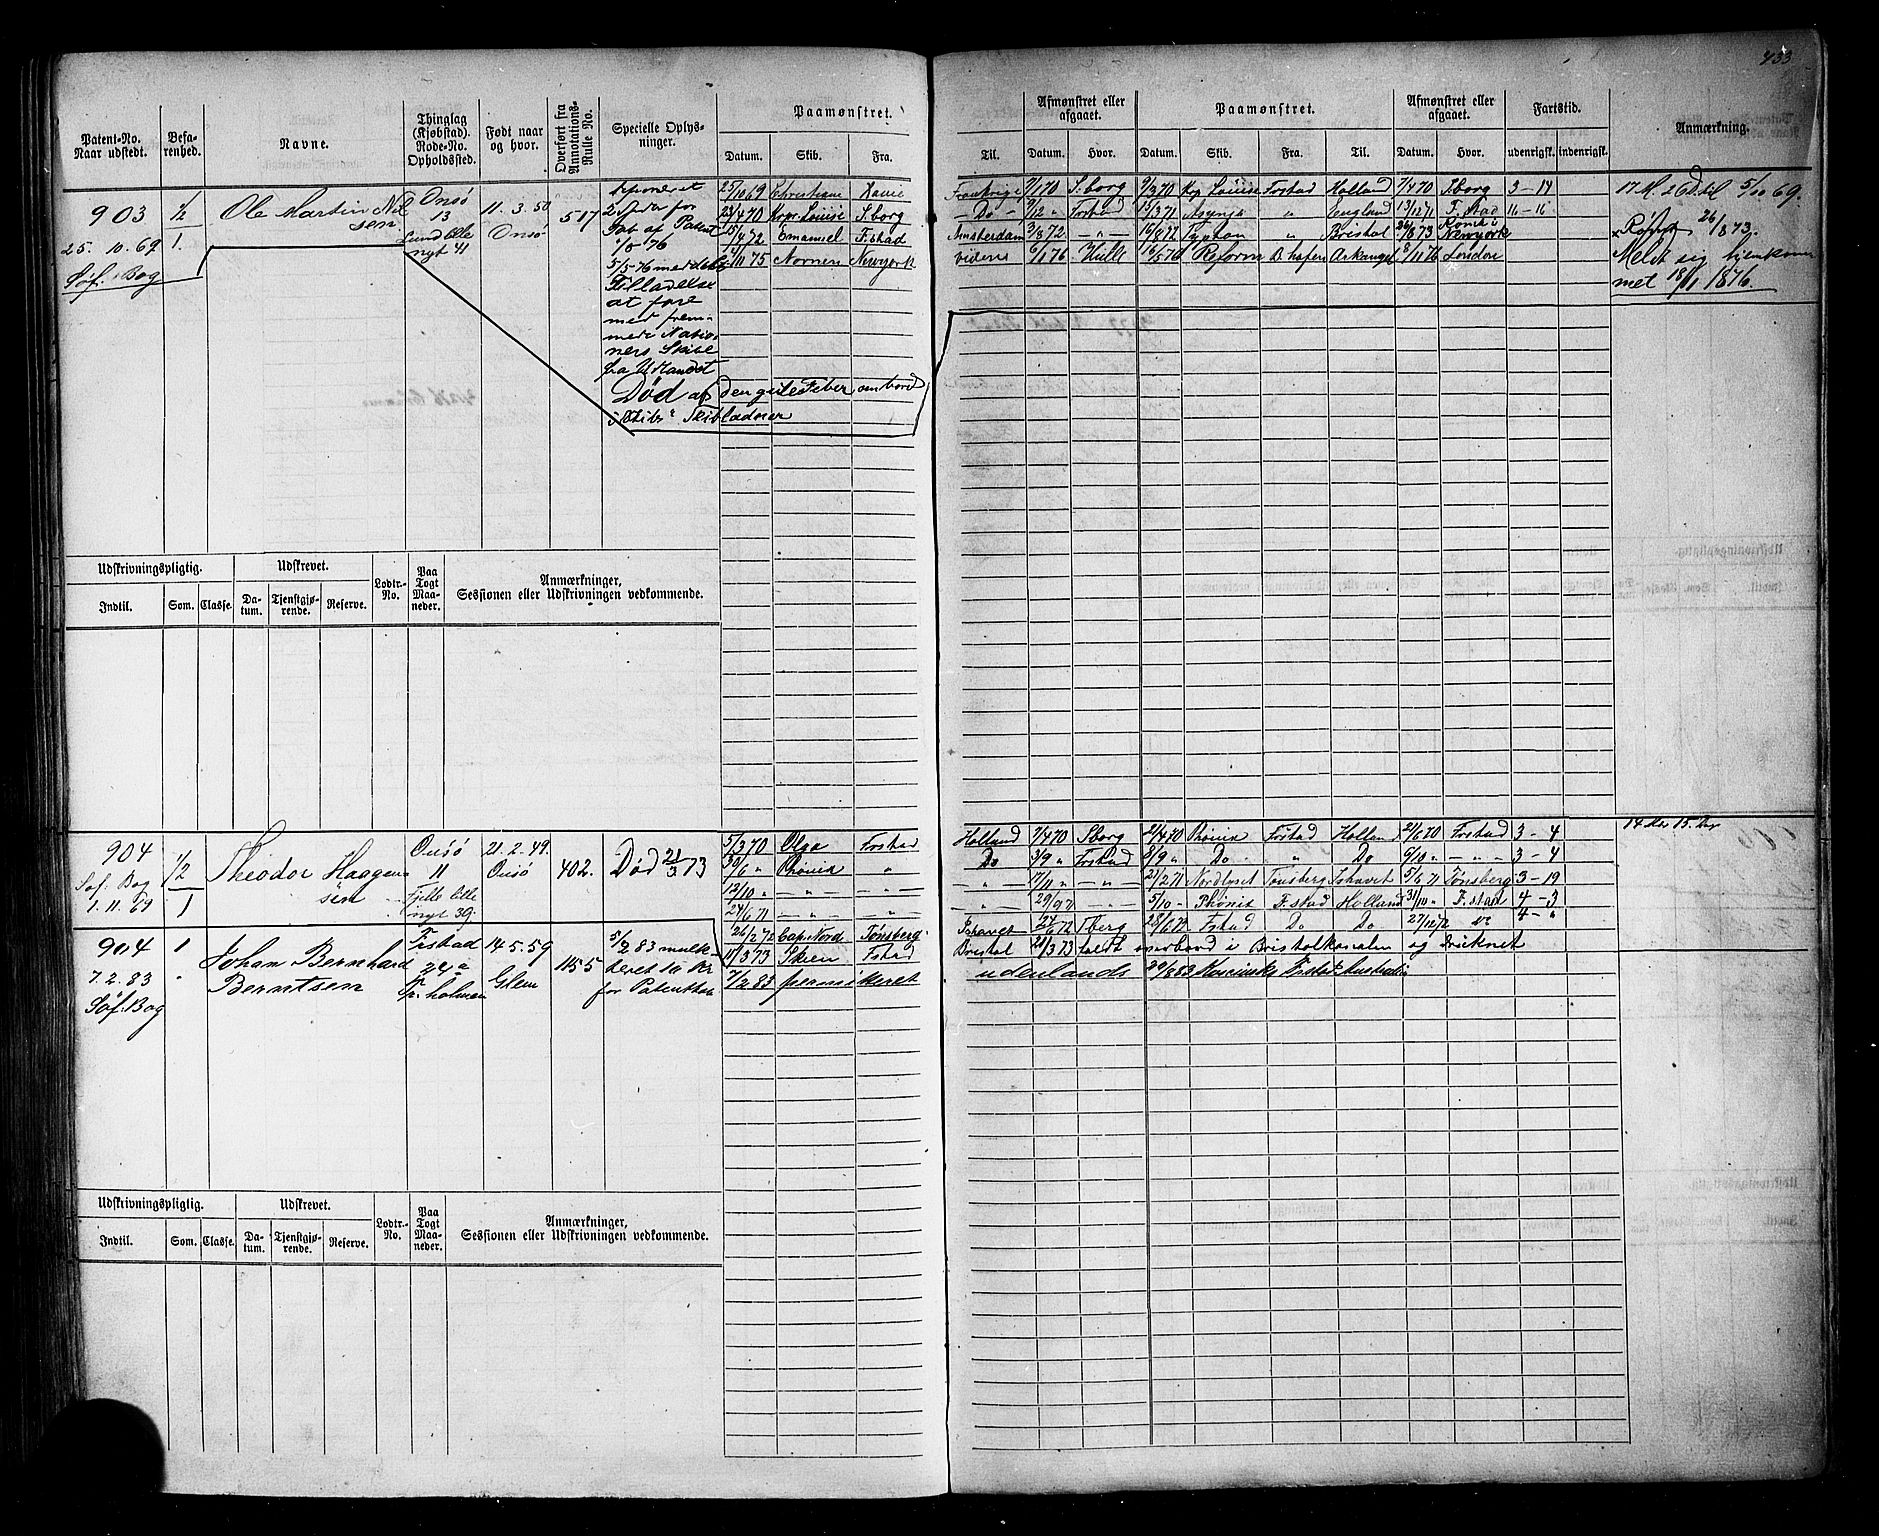 433
Patent-No. Naar udstedt.
Befarenhed.
Navne.
Thinglag (Kjøbstad). Rode-No. Opholdssted.
Født naar og hvor.
Overført fra Annotations-Rulle No.
Specielle Oplysninger.
Paamønstret.
Datum. Skib. Fra.
Til.
Afmønstret eller afgaaet.
Datum. Hvor.
Paamønstret.
Datum. Skib. Fra. Til.
Afmønstret eller afgaaet.
Datum. Hvor.
Fartstid.
udenrigsk. indenrigsk.
Anmærkning.
903
25. 10. 69
Søf: Bog
1/2
1.
Ole Martin Nilsen
Onsø
13
Lund lille
nyt 41
11. 3. 50
Onsø
517
deponeret
for
Tab af Patent
5/5 76 meddelt
Tilladelse
at fare
med fremmede Nationers Skibe
fra Udlandet
Død af den gule Feber ombord
i Skibladner
25/10 69 Christiane
23/4 70 Kpr. Louise S.borg
15/4 72 Emanuel F.stad
11 75 Nornen Newyork
Frankrige 9/1 70 S.borg 9/3 70 Kp Louise Frstad Holland 7/4 70 Sborg 3-14
- Do - 9/12 " Frstad 15/3 71 " England 13/12 71 F.stad 11-16
Amsterdam 3/8 72 - " - 16/8 72 " Bristol 26/8 73 Newyork
videre 6/1 76 Hull 16/5 76 Reform D.hafen Arkangel 8/11 76 London
17 M. 2 D til 5/10 69.
Rømt 26/8 73.
Meldt sig hjemkommet 18/11 1876.
Udskrivningspligtig.
Indtil. Som. Classe.
Udskrevet.
Datum. Tjenstgjørende. Reserve.
Lodtr.-No.
Paa Togt Maaneder.
Anmærkninger, Sessionen eller Udskrivningen vedkommende.
904
Søf. Bog
1. 11. 69
1/2
1
Theodor Haagensen
Onsø
11
Fjelle lille
nyt 39.
21. 2. 49.
Onsø
402.
Død 21/3 73
5/3 70 Olga Frstad
30/6 " Phönix "
12/10 " - " - - " -
24/6 71 - " - "
26/2 72 Cap Nord Tønsberg
11/3 73 Skien Fstad
Holland 7/4 70 Sborg 21/4 70 Phönix Frstad Holland 21/6 70 Frstad 3-4
Do 3/9 " Frstad 8/9 " Do " Do 9/10 " - " - 3-4
- " - 7/11 " - " - 21/2 71 Nordlyset Tønsberg Ishavet 5/6 71 Tønsberg 3-19
- " - 29/9 71 - " - 5/10 - Phönix F.stad Holland 31/10 " F.stad 4-3
Ishavet 24/6 72 Tberg 28/6 72 Fstad Do Do 27/12 72 Do 4-"
Bristol 21/3 73 faldt overbord i Bristolkanalen og druknet
14 Mdr 15. Dg
904
7. 2. 83
Søf: Bog
1
"
Johan Bernhard
Berntsen
Fr.stad
24 a
Fr. holmen
14. 5. 59
Glem
1155
5/2 83 mulkteret 10 Kr
for Patenttab
7/2 83 permitteret
udenlands 29/8 83 Frstad Australien
Udskrivningspligtig.
Indtil. Som. Classe.
Udskrevet.
Datum. Tjenstgjørende. Reserve.
Lodtr.-No.
Paa Togt Maaneder.
Anmærkninger, Sessionen eller Udskrivningen vedkommende.